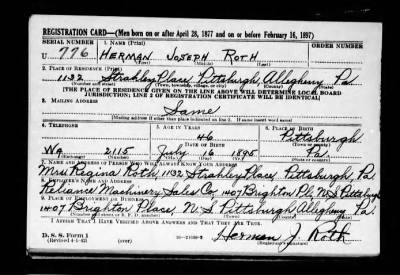 REGISTRATION CARD—(Men born on or after April 28, 1877 and on or before February 16, 1897)
SERIAL NUMBER 1. NAME (Print) ORDER NUMBER
U 776 HERMAN JOSEPH ROTH
(First) (Middle) (Last)
2. PLACE OF RESIDENCE (Print)
1132 Strahley Place, Pittsburgh, Allegheny Pa.
(Number and street) (Town, township, village, or city) (County) (State)
[THE PLACE OF RESIDENCE GIVEN ON THE LINE ABOVE WILL DETERMINE LOCAL BOARD
JURISDICTION; LINE 2 OF REGISTRATION CERTIFICATE WILL BE IDENTICAL]
3. MAILING ADDRESS
Same
[Mailing address if other than place indicated on line 2. If same insert word same]
4. TELEPHONE 5. AGE IN YEARS 6. PLACE OF BIRTH
46 Pittsburgh
DATE OF BIRTH (Town or county)
Wa 2115 July 16 1895 Pa.
(Exchange) (Number) (Mo.) (Day) (Yr.) (State or country)
7. NAME AND ADDRESS OF PERSON WHO WILL ALWAYS KNOW YOUR ADDRESS
Mrs Regina Roth, 1132 Strahley Place, Pittsburgh, Pa
8. EMPLOYER'S NAME AND ADDRESS
Reliance Machinery Sales Co. 1407 Brighton Pl. N.S Pittsburgh
9. PLACE OF EMPLOYMENT OR BUSINESS
1407 Brighton Place, N.S Pittsburgh Allegheny Pa.
(Number and street or R. F. D. number) (Town) (County) (State)
I AFFIRM THAT I HAVE VERIFIED ABOVE ANSWERS AND THAT THEY ARE TRUE.
D. S. S. Form 1
(Revised 4-1-42) (over) Herman J. Roth
(Registrant's signature)